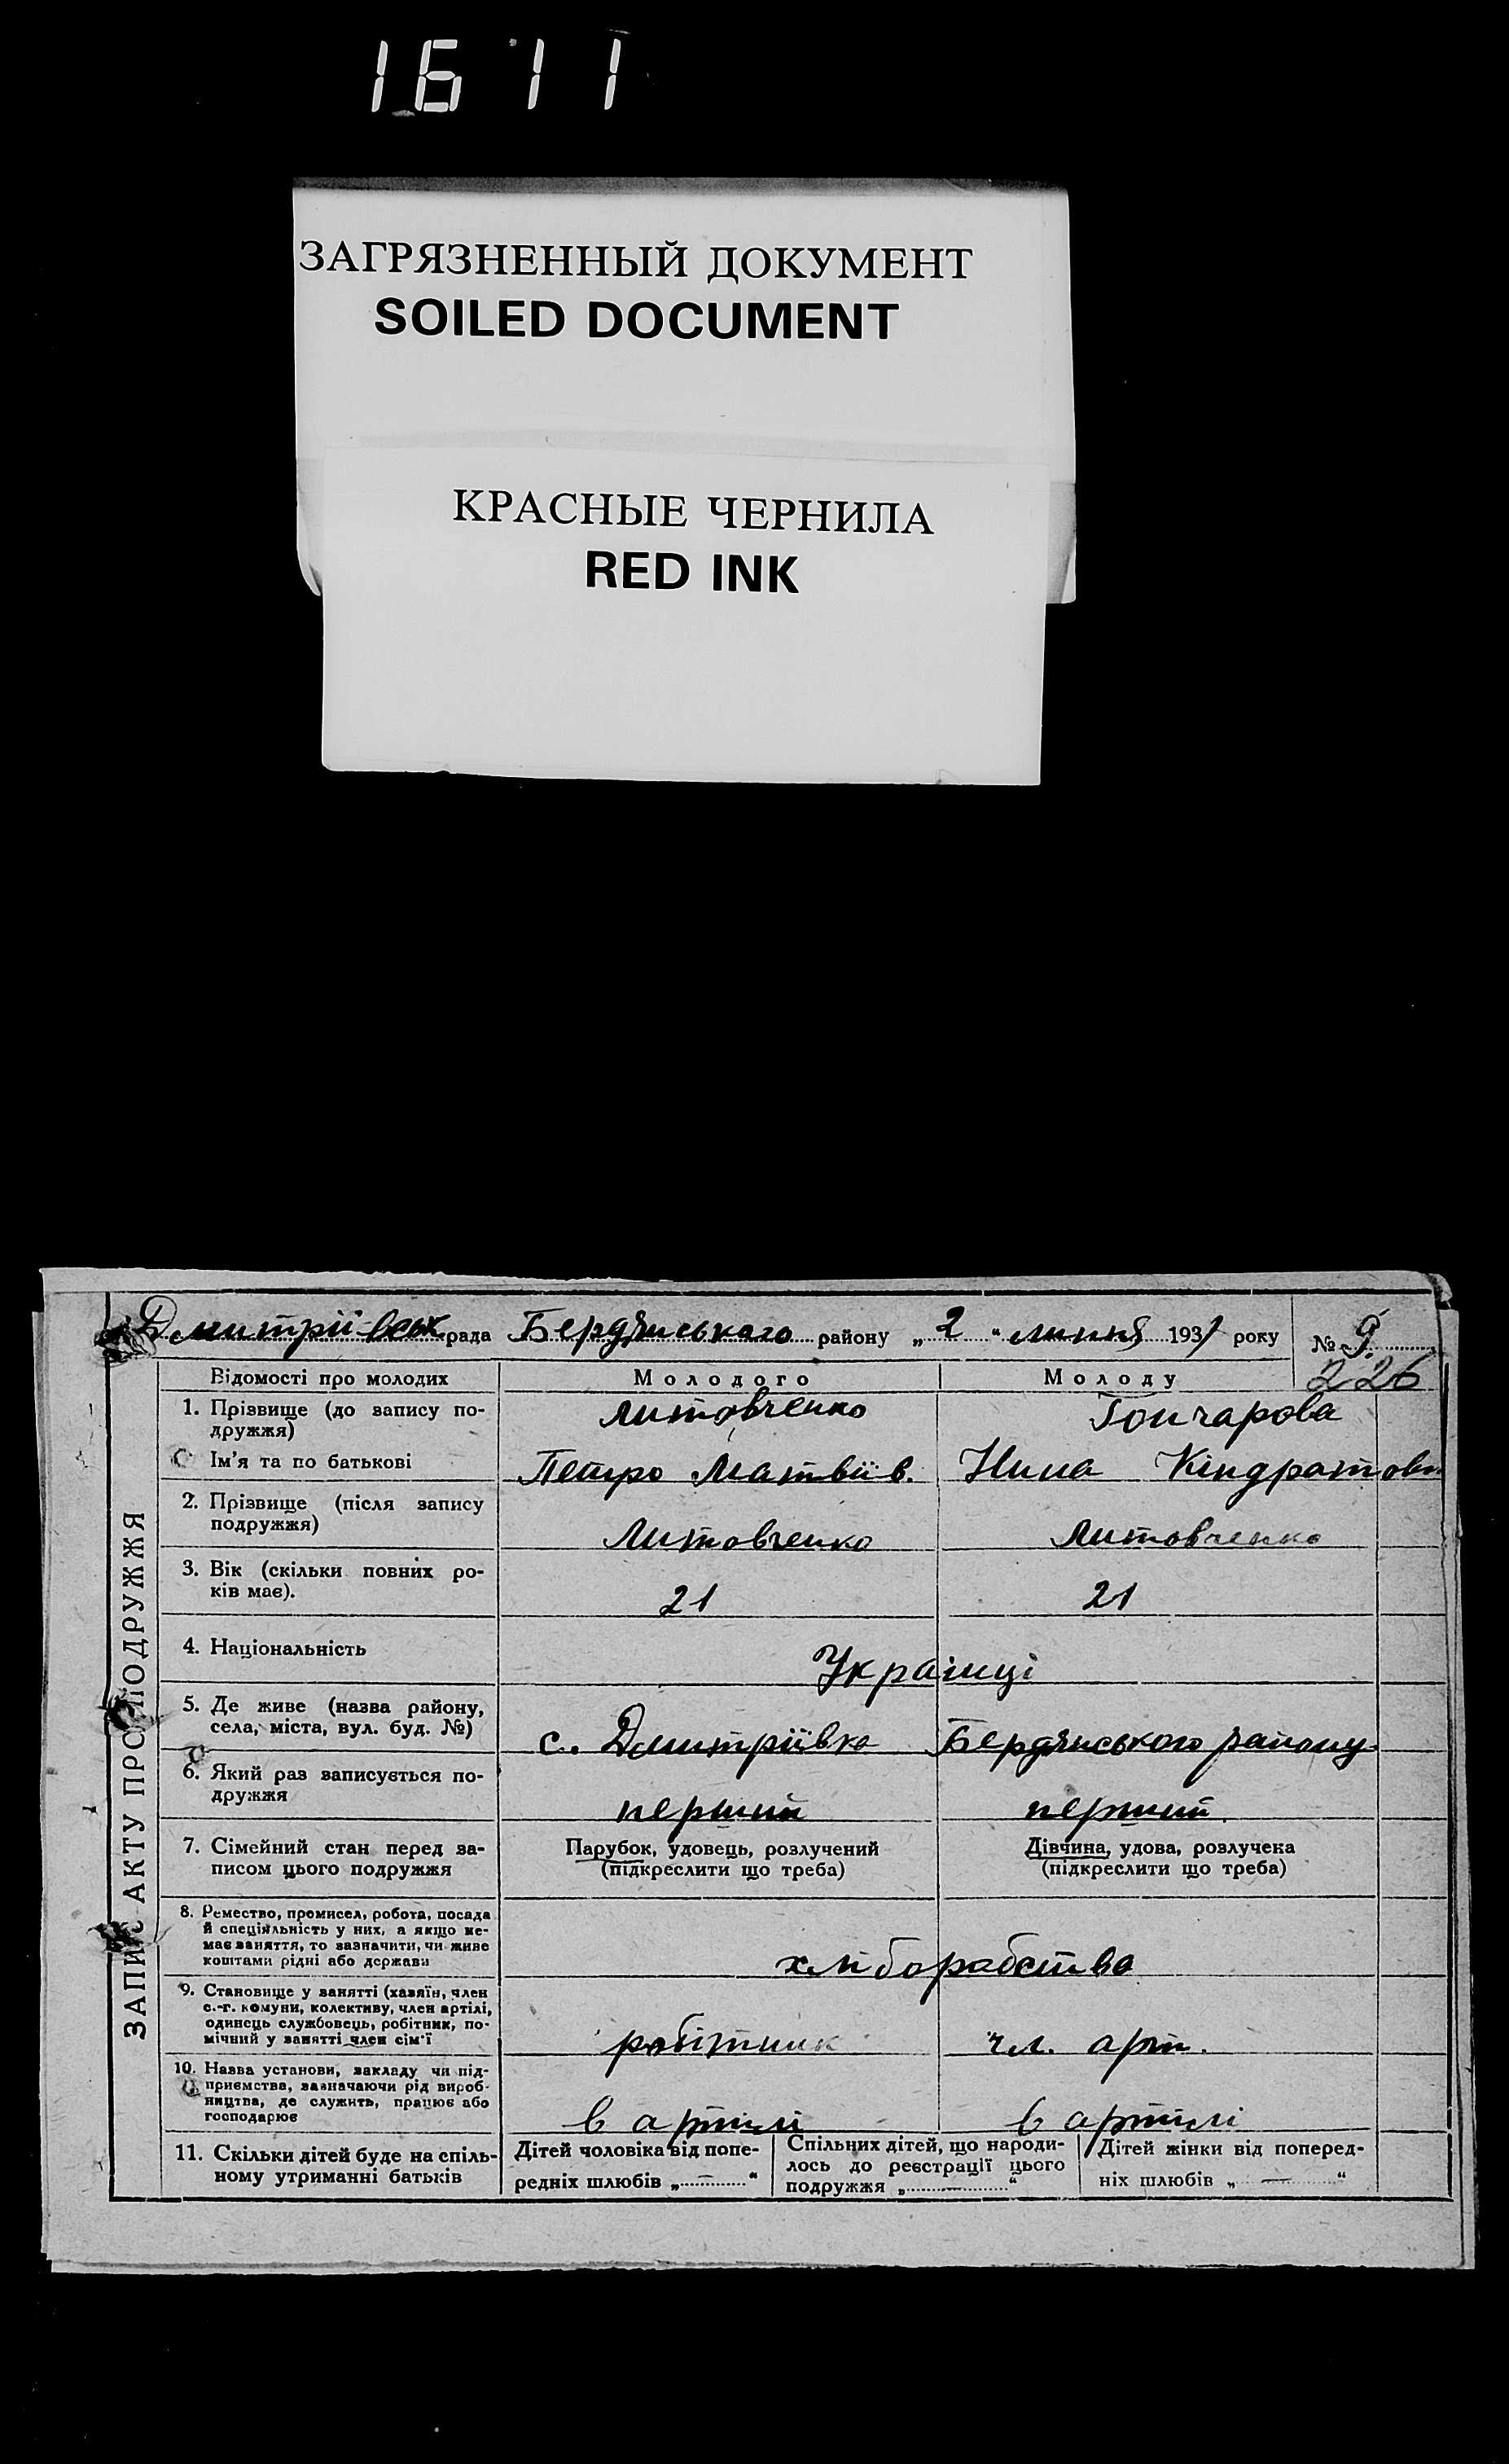 1671
ЗАГРЯЗНЕННЫЙ ДОКУМЕНТ
SOILED DOCUMENT
КРАСНЫЕ ЧЕРНИЛА
RED INK
ЗАПИС АКТУ ПРО ПОДРУЖЖЯ
Дмитріївськ рада Бердянського району „ 2 “ липня 1931 року № 9.
226
Відомості про молодих Молодого Молоду
1. Прізвище (до запису по- Литовченко Гончарова
дружжя)
Ім'я та по батькові Петро Матвіїв. Нина Кіндратовн
2. Прізвище (після запису
подружжя) Литовченко Литовченко
3. Вік (скільки повних ро-
ків має). 21 21
4. Національність Українці
5. Де живе (назва району,
села, міста, вул. буд. №) с. Дмитріївка Бердянського району
6. Який раз записується по-
дружжя перший перший
7. Сімейний стан перед за- Парубок, удовець, розлучений Дівчина, удова, розлучека
писом цього подружжя (підкреслити що треба) (підкреслити що треба)
8. Ремество, промисел, робота, посада
й спеціяльність у них, а якщо не-
має заняття, то зазначити, чи живе
коштами рідні або держави хліборабства
9. Становище у занятті (хазяїн, член
с.-г. комуни, колективу, член артілі,
одинець службовець, робітник, по-
мічний у занятті член сім'ї робітник чл. арт.
10. Назва установи, закладу чи під-
приємства, зазначаючи рід вироб-
ництва, де служить, працює або
господарює в артілі в артілі
11. Скільки дітей буде на спіль- Дітей чоловіка від попе- Спільних дітей, що народи- Дітей жінки від поперед-
ному утриманні батьків редніх шлюбів „ — “ лось до реєстрації цього ніх шлюбів „ — “
подружжя „ — “